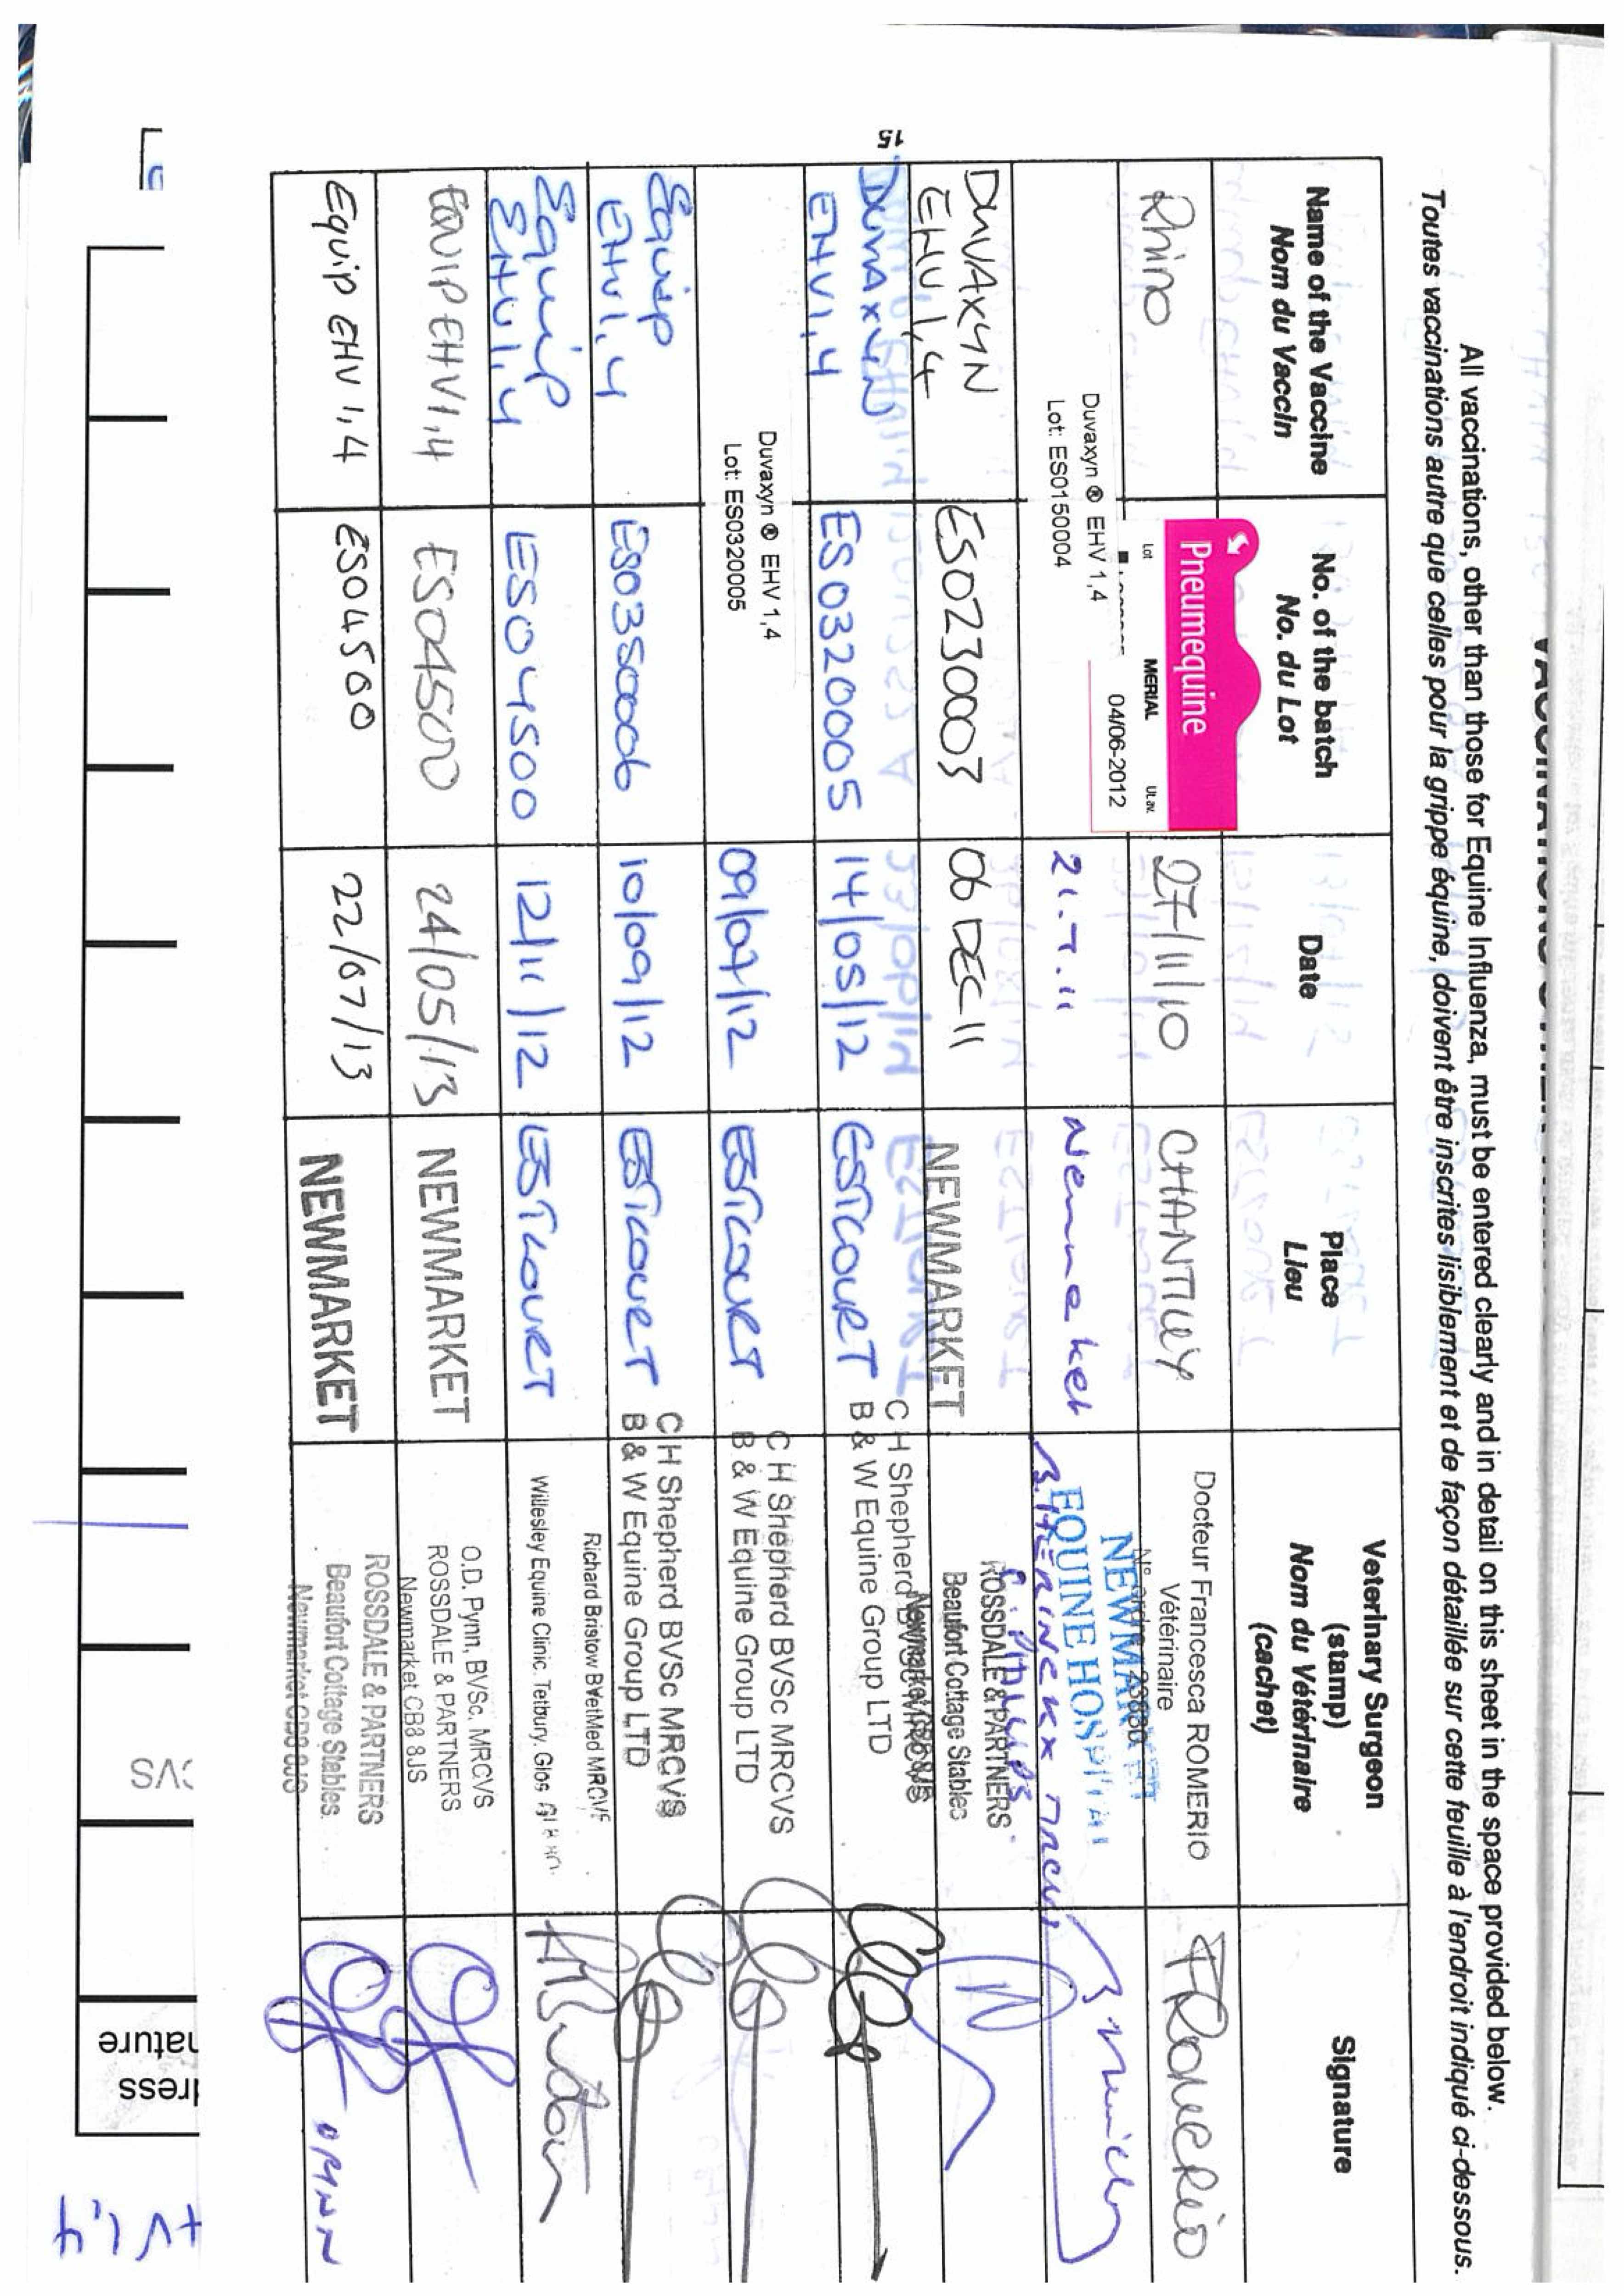 All vaccinations, other than those for Equine Influenza, must be entered clearly and in detail on this sheet in the space provided below.
Toutes vaccinations autre que celles pour la grippe équine, doivent être inscrites lisiblement et de façon détaillée sur cette feuille à l'endroit indiqué ci-dessous.
Name of the Vaccine
Nom du Vaccin
No. of the batch
No. du Lot
Date
Place
Lieu
Veterinary Surgeon
(stamp)
Nom du Vétérinaire
(cachet)
Signature
Rhino
Pneumequine
Lot
MERIAL
Ut.av.
04/06-2012
27/11/10
CHANTILLY
Docteur Francesca ROMERIO
Vétérinaire
FRomerio
Duvaxyn ® EHV 1,4
Lot: ES0150004
21.7.11
Newmarket
NEWMARKET
EQUINE HOSPITAL
DUVAXYN
EHV 1,4
ES0230003
06 DEC 11
NEWMARKET
ROSSDALE & PARTNERS
Beaufort Cottage Stables
Newmarket CB8 8JS
15
DUVAXYN
EHV1,4
ES0320005
14/05/12
ESTCOURT
C H Shepherd
B & W Equine Group LTD
Duvaxyn ® EHV 1,4
Lot: ES0320005
09/07/12
ESTCOURT
C H Shepherd BVSc MRCVS
B & W Equine Group LTD
Equip
EHV1,4
ES0350006
10/09/12
ESTCOURT
C H Shepherd BVSc MRCVS
B & W Equine Group LTD
Equip
EHV1,4
ES04500
12/11/12
ESTCOURT
Richard Bristow BVetMed MRCVS
Willesley Equine Clinic. Tetbury. Glos
EQUIP EHV1,4
ES04500
24/05/13
NEWMARKET
O.D. Pynn, BVSc, MRCVS
ROSSDALE & PARTNERS
Newmarket CB8 8JS
Equip EHV 1,4
ES04500
22/07/13
NEWMARKET
ROSSDALE & PARTNERS
Beaufort Cottage Stables.
Newmarket CB8 8JS
O PYNN
CVS
nature
dress
HV 1,4